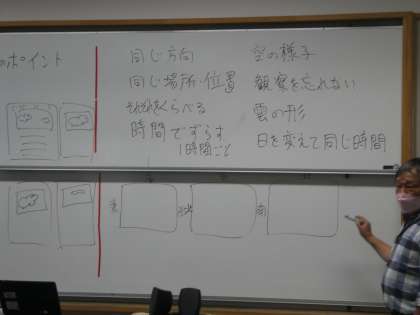 のポイント
同じ方向
同じ場所・位置
それぞれくらべる
時間でずらす
1時間ごと
空の様子
観察を忘れない
雲の形
日を変えて同じ時間